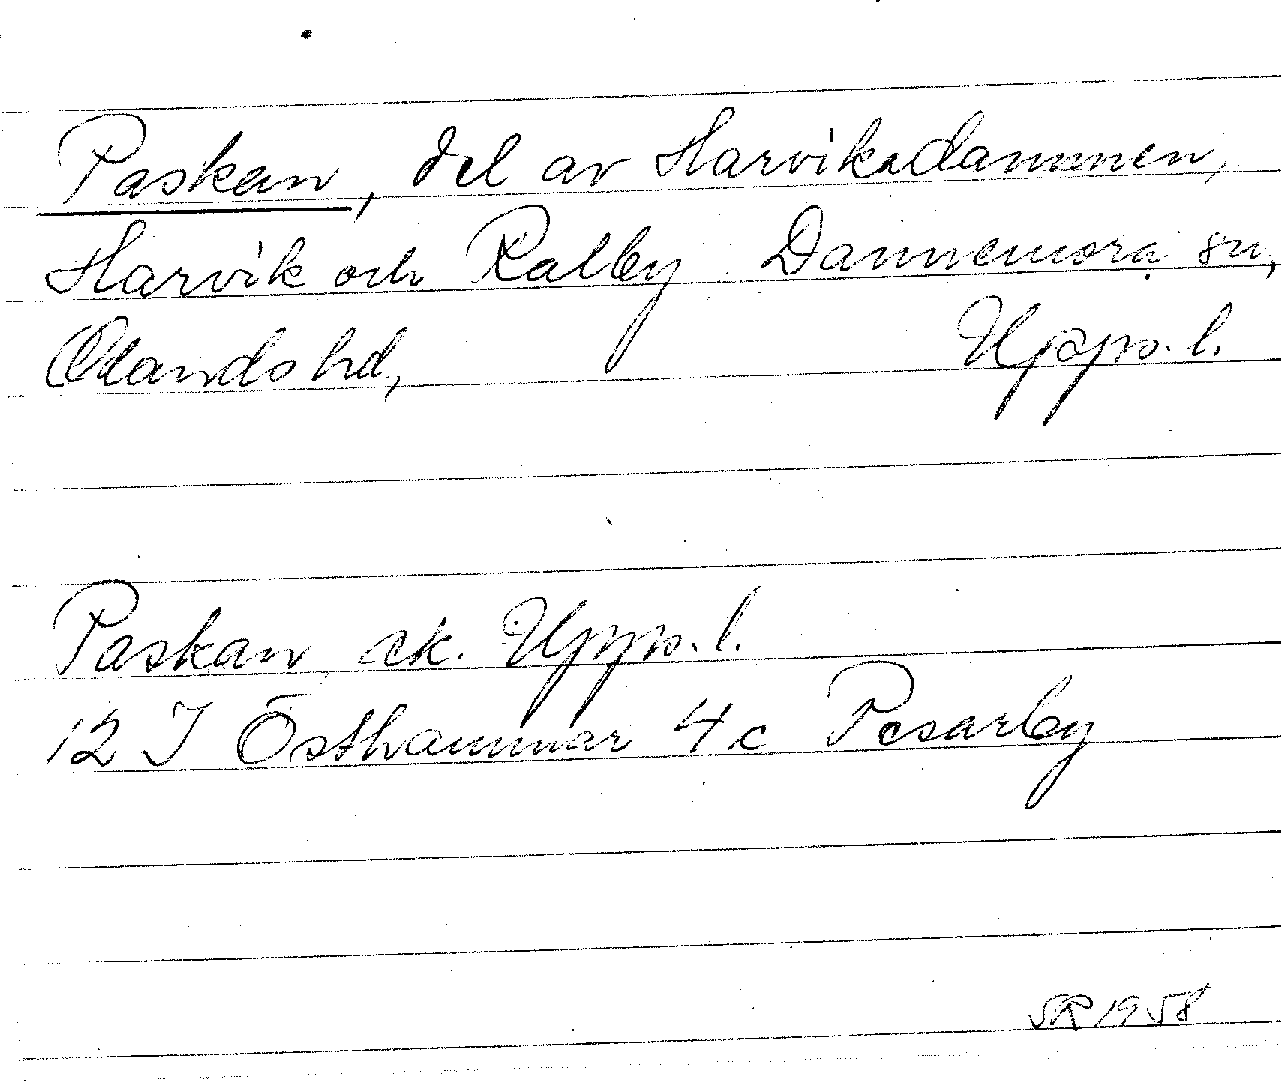 Paskan, del av Harviksdammen,
Harvik och Ralby Dannemora sn,
Olands hd, Upps. l.
Paskan ek. Upps. l.
12 I Östhammar 4 c Pesarby
SR 1958